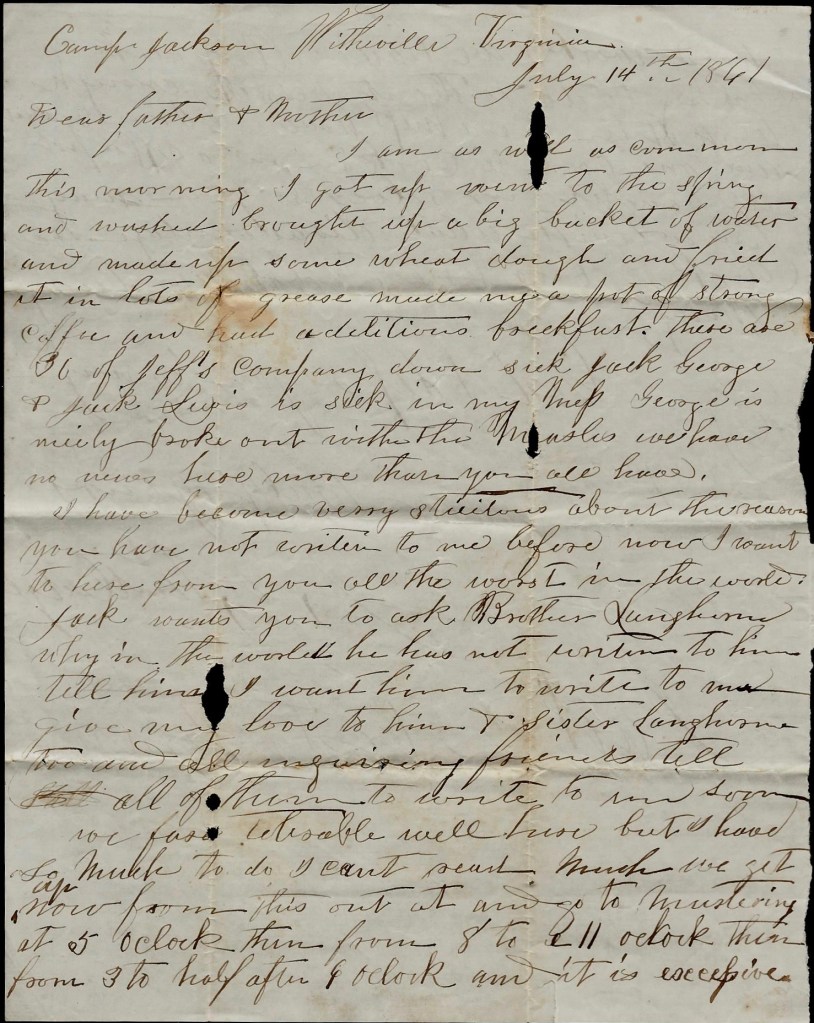 Camp Jackson Witheville Virginia
July 14th 1861
Dear father & Mother
I am as well as common
this morning I got up went to the spring
and washed brought up a big bucket of water
and made up some wheat dough and fried
it in lots of grease made me a pot of strong
coffee and had a delitious breckfast. There are
30 of Jeff's company down sick Jack George
& Jack Lewis is sick in my Mess George is
nicely broke out with the Measles we have
no news here more than you all have.
I have become verry about the reason
you have not writen to me before now I want
to here from you all the worst in the world.
Jack wants you to ask Brother Langhorne
why in the world he has not writen to him
tell him I want him to write to me
give my love to him & Sister Langhorne
too and all inquiring friends tell
all of them to write to me soon
we fare tolerable well here but I have
so Much to do I cant read Much we get
up now from this out at and go to Mustering
at 5 oclock then from 8 to 11 oclock then
from 3 to half after 6 oclock and it is excessive